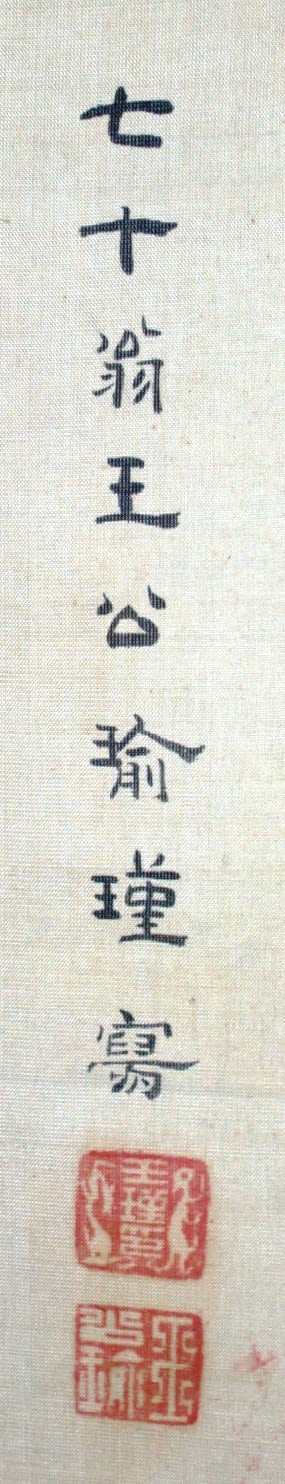 七十翁王公瑜瑾寫